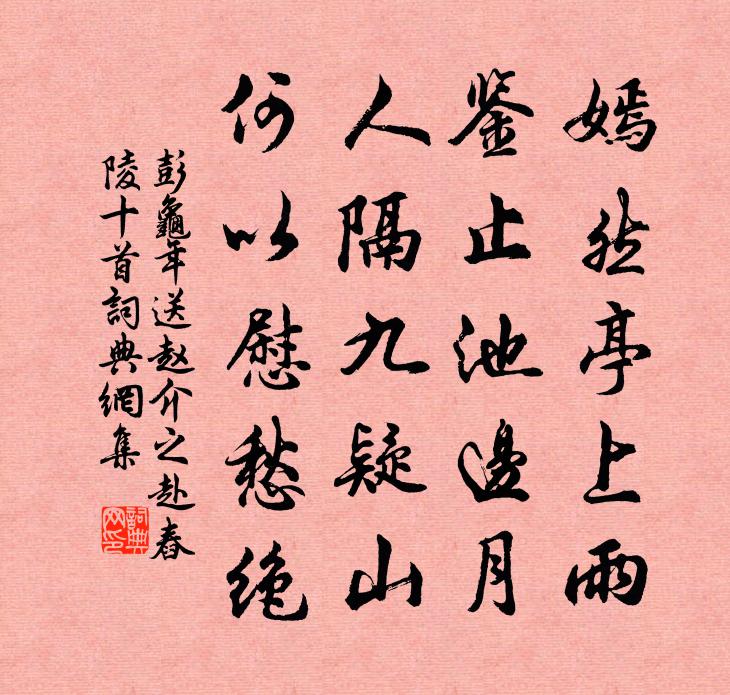 嫣然亭上雨
鉴止池邊月
人隔九疑山
何以慰愁绝
彭龜年送赵介之赴舂
陵十首詞典網集
詞典网印